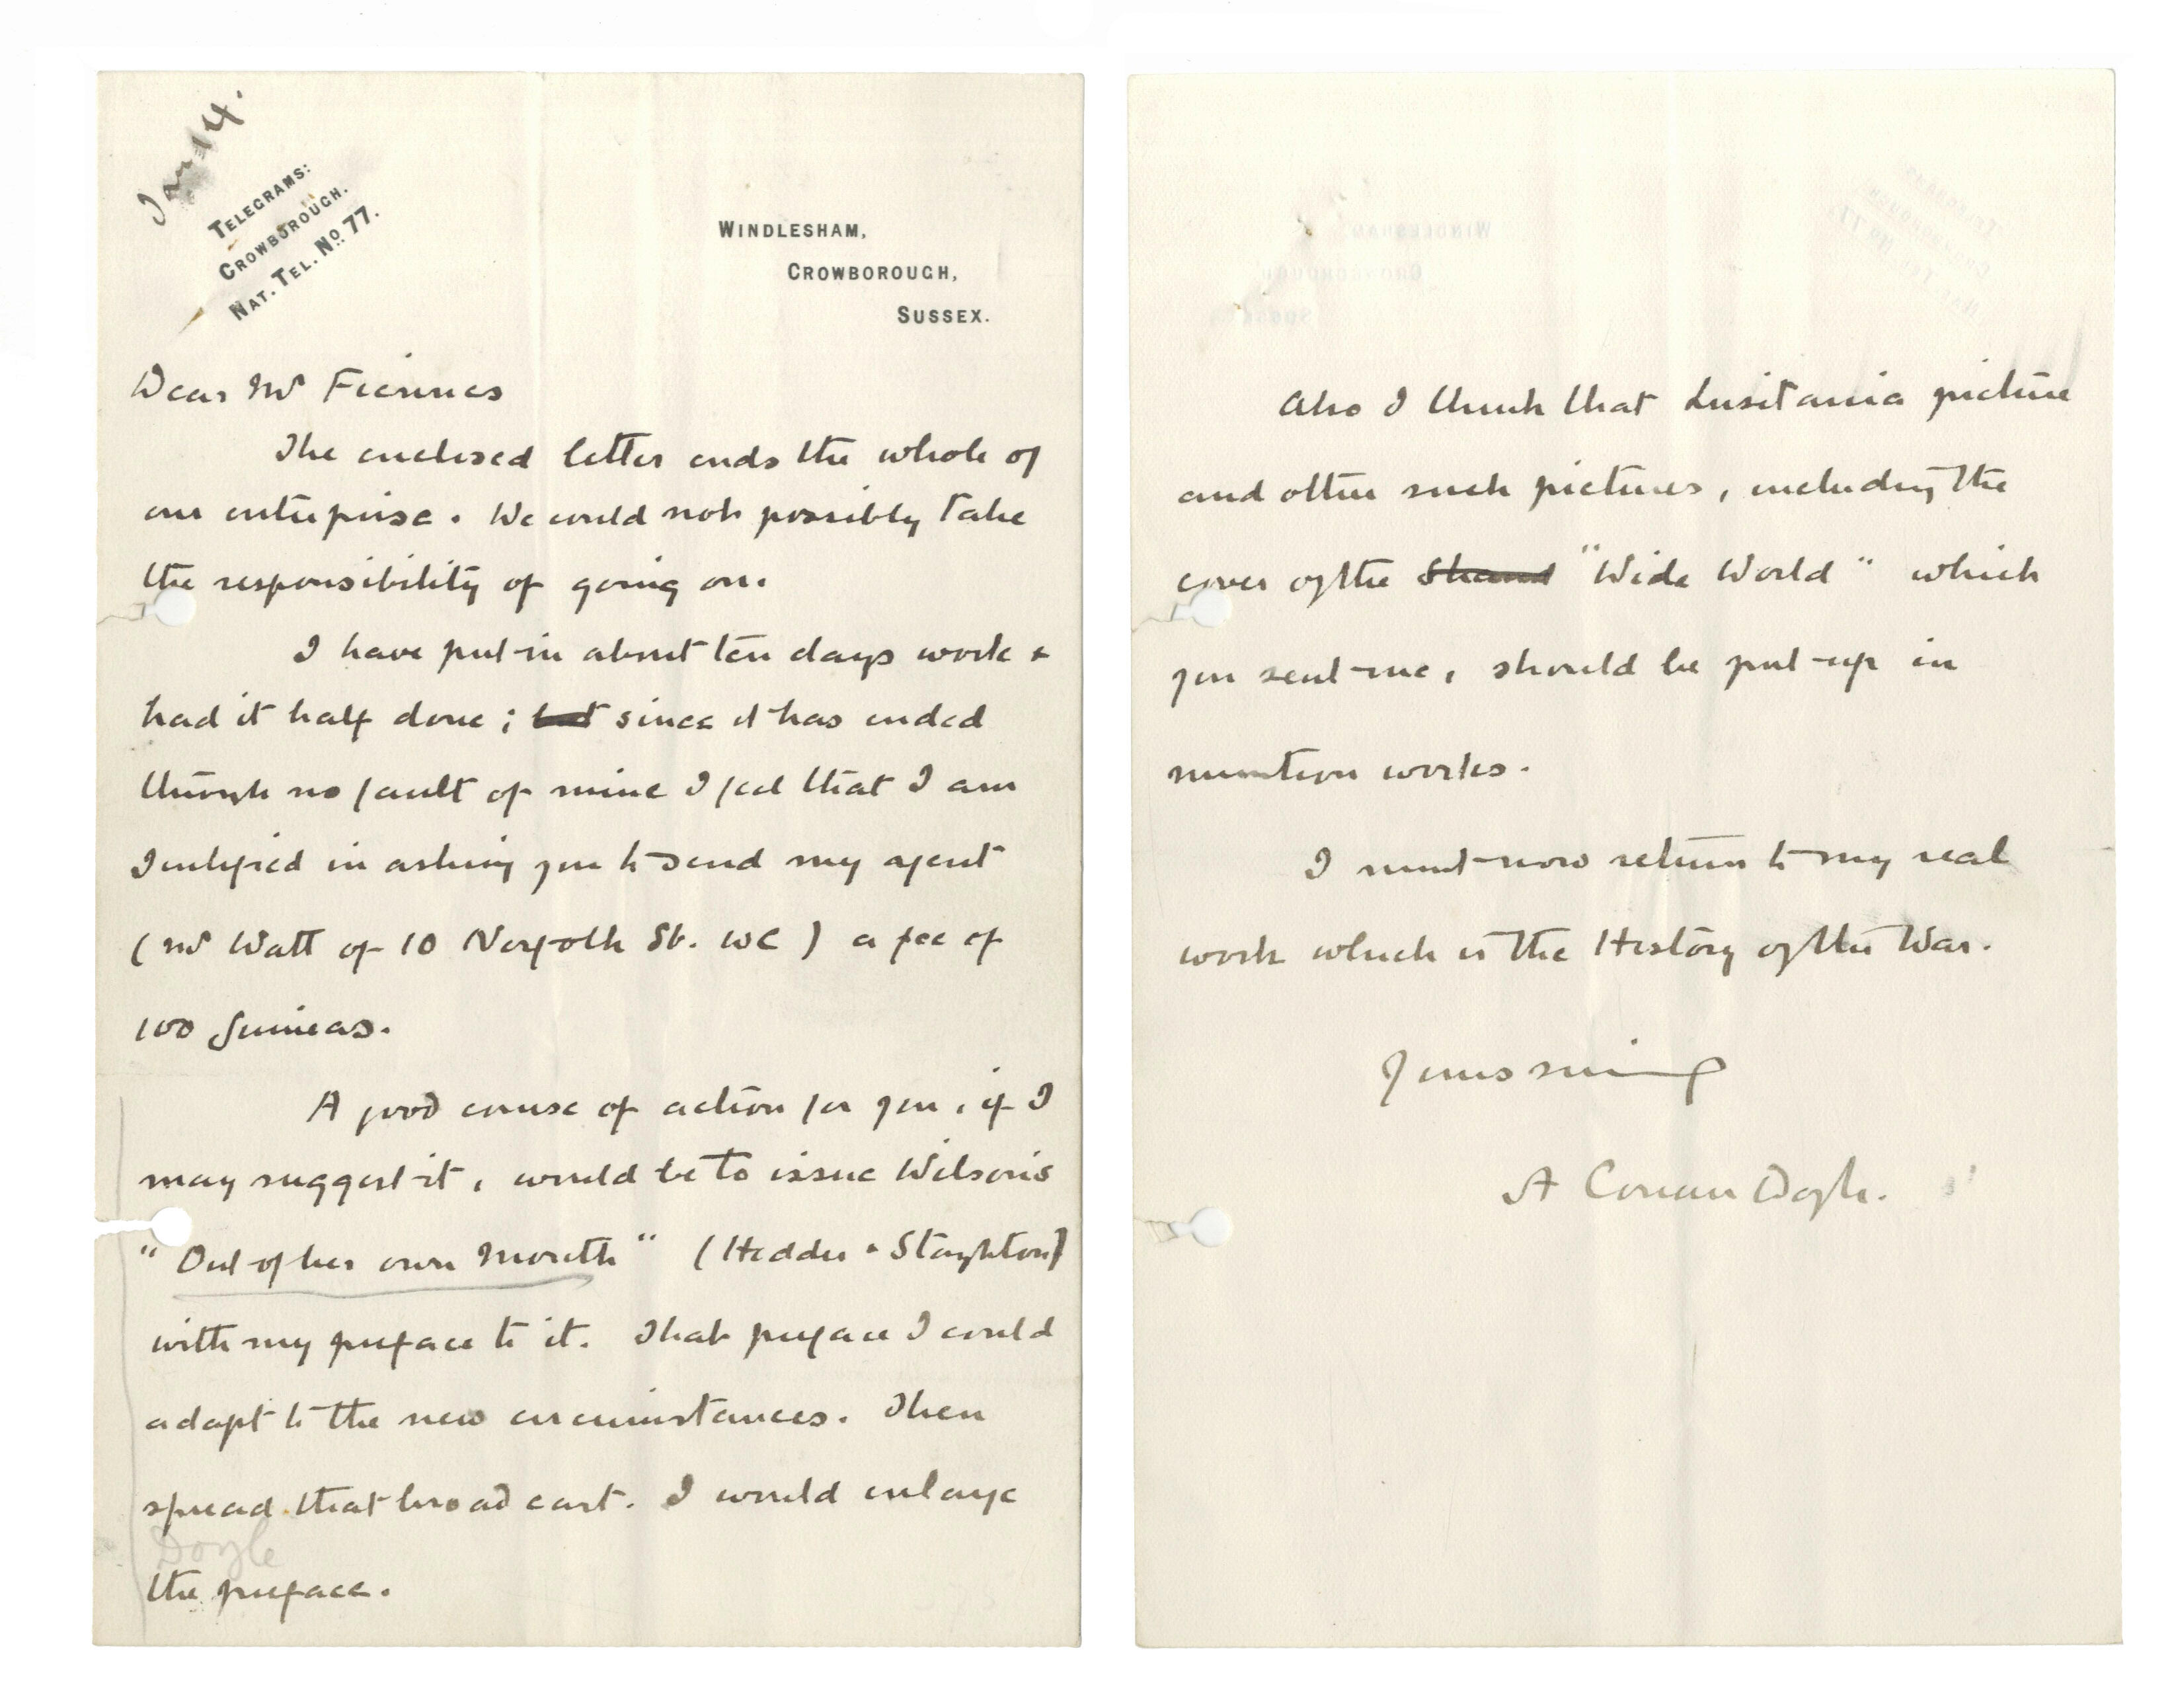 Jan 14.
TELEGRAMS:
CROWBOROUGH.
NAT. TEL. No. 77.
WINDLESHAM,
CROWBOROUGH,
SUSSEX.
Dear Mr Fiennes
The enclosed letter ends the whole of
our enterprise. We could not possibly take
the responsibility of going on.
I have put in about ten days work &
had it half done; but since it has ended
through no fault of mine I feel that I am
Justified in asking you to send my agent
(Mr Watt of 10 Norfolk St. WC) a fee of
100 Guineas.
A good course of action for you, if I
may suggest it, would be to issue Wilson's
"Out of her own Mouth" (Hodder & Stoughton)
with my preface to it. That preface I could
adapt to the new circumstances. Then
spread that broad cast. I would enlarge
Doyle
the preface.
Also I think that Lusitania picture
and other such pictures, including the
cover of the Strand "Wide World" which
you sent me, should be put up in
munition works.
I must now return to my real
work which is the History of the War.
Yours sincerely
A Conan Doyle.